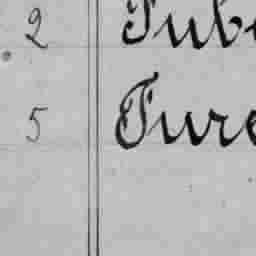 2 Tub
5 Ture